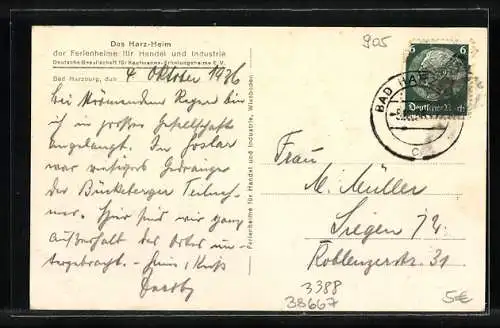 Das Harz-Heim
der Ferienheime für Handel und Industrie
Deutsche Gesellschaft für Kaufmanns-Erholungsheime E.V.
Bad Harzburg, den 4 Oktober 1936
Bei strömendem Regen bin
ich in großer Gesellschaft
angelangt. In Goslar
war riesiges Gedränge
der Bückeberger Teilneh-
mer. Hier sind wir ganz
außerhalb des Ortes un-
tergebracht. Gruß, Kuß
Ferienheime für Handel und Industrie, Wiesbaden.
905
6 6
Deutsches Reich
BAD HARZ
Frau
M. Müller
Siegen i/W.
Koblenzerstr. 31
3388
38667
5€